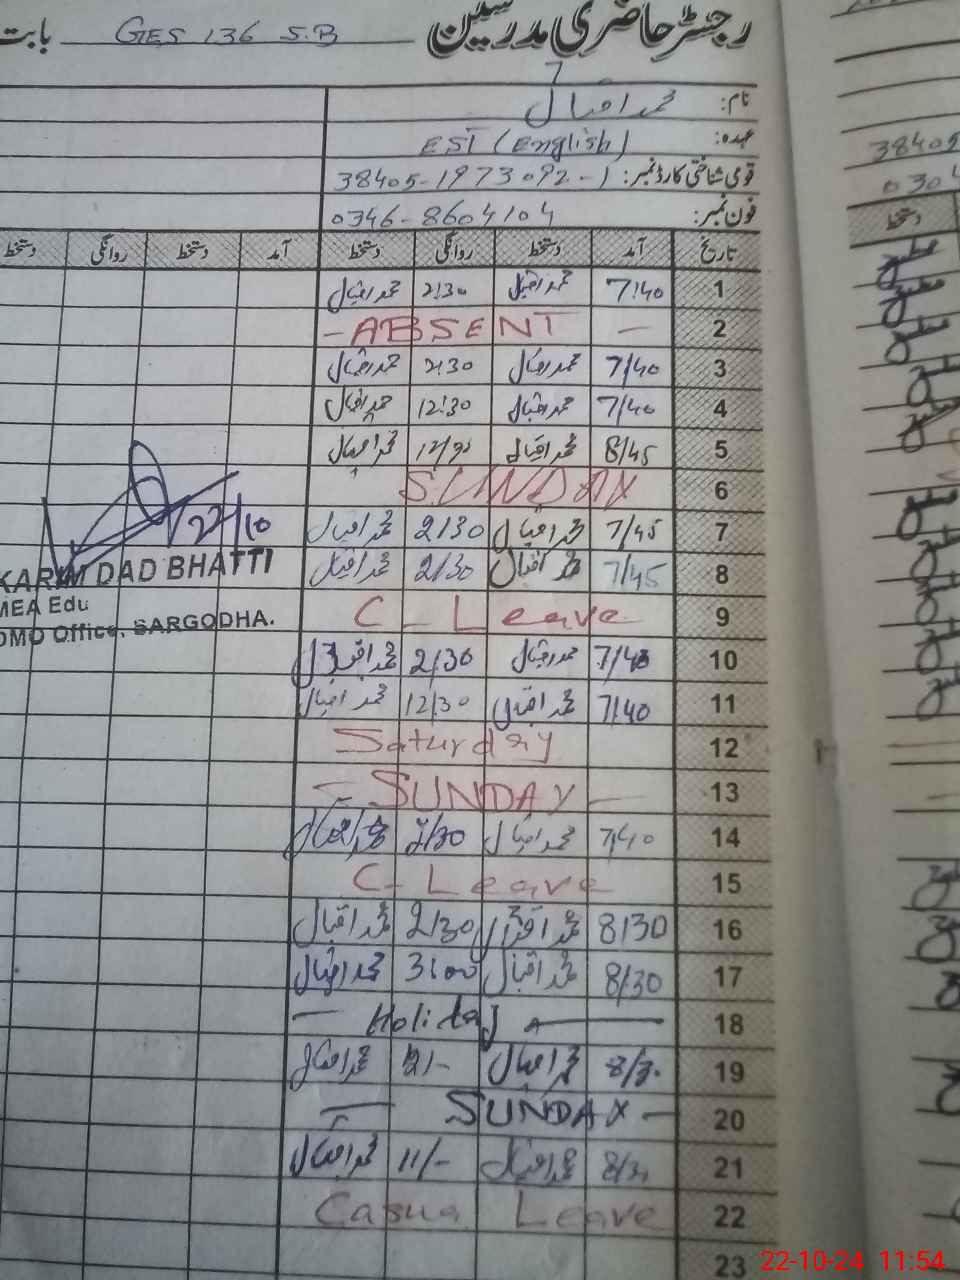 رجسٹر حاضری مدرسین GES 136 S.B بابت
نام: محمد اقبال
عہدہ: EST (English)
قومی شناختی کارڈ نمبر: 38405-1973092-1
فون نمبر: 0346-8604104
تاریخ آمد دستخط روانگی دستخط آمد دستخط روانگی دستخط
1 7:40 محمد اقبال 2:30 محمد اقبال
2 - ABSENT -
3 7/40 محمد اقبال 2:30 محمد اقبال
4 7/40 محمد اقبال 12:30 محمد اقبال
5 8/45 محمد اقبال محمد اقبال
6 SUNDAY
7 7/45 محمد اقبال 2/30 محمد اقبال
8 7/45 محمد اقبال 2/30 محمد اقبال
9 C - Leave
10 محمد اقبال 2/30 محمد اقبال
11 7/40 محمد اقبال 12/30 محمد اقبال
12 Saturday
13 - SUNDAY -
14 7/40 محمد اقبال 2/30 محمد اقبال
15 C - Leave
16 8/30 محمد اقبال 2/30 محمد اقبال
17 8/30 محمد اقبال 3:00 محمد اقبال
18 - Holiday -
19 محمد اقبال محمد اقبال
20 - SUNDAY -
21 محمد اقبال 11/- محمد اقبال
22 Casua Leave
23
22/10
KARIM DAD BHATTI
MEA Edu
DMO Office, SARGODHA.
38405
0304
دستخط
22-10-24 11:54